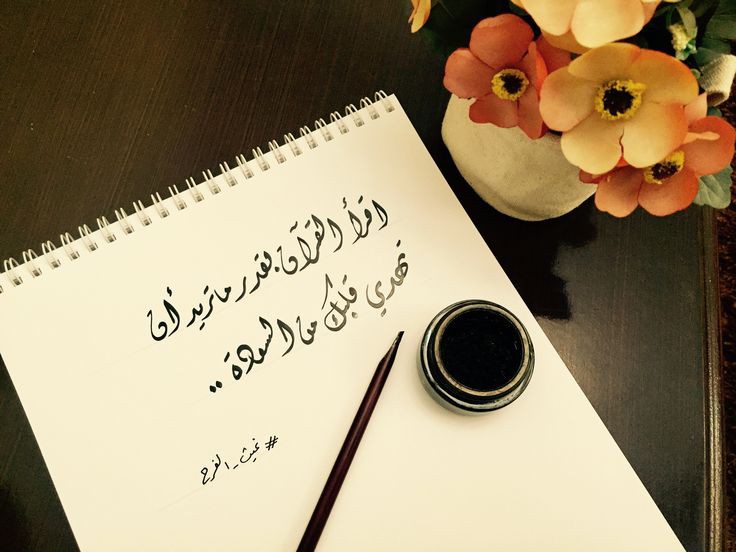 اقرأ القرآن بقدر ما تريد أن
تهدي قلبك من السعادة ..
#غيث_الفرح